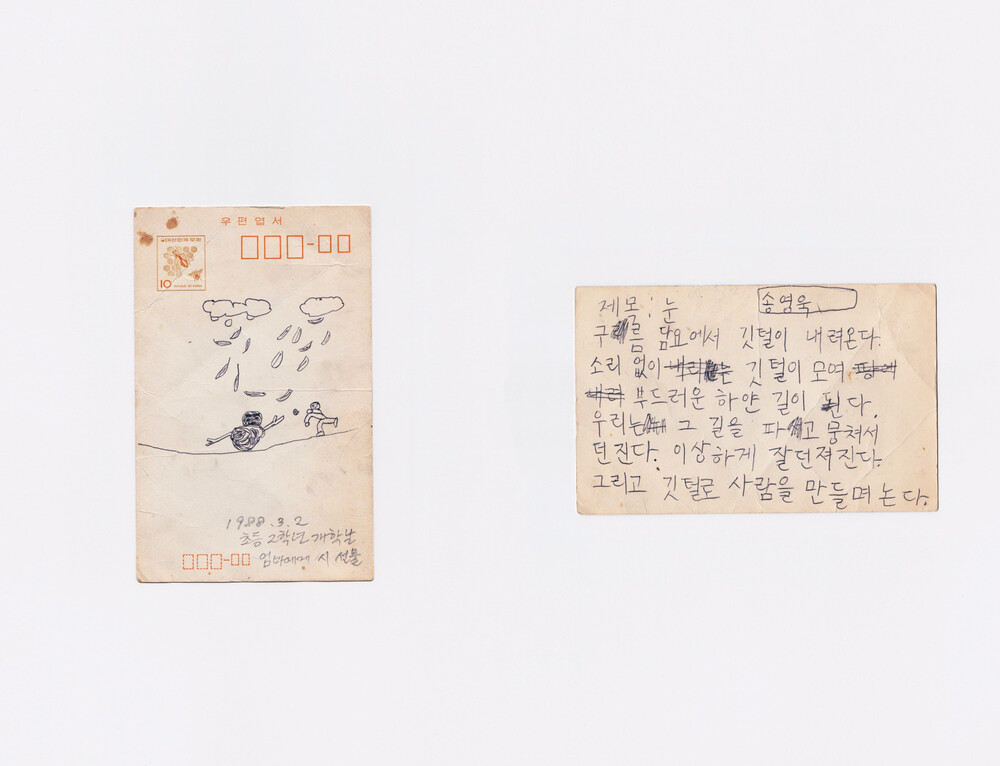 우편엽서
대한민국우표
10
1988.3.2
초등 2학년 개학날
엄마에게 시 선물
제목: 눈
송영욱
구름 담요에서 깃털이 내려온다.
소리 없이 깃털이 모여
부드러운 하얀 길이 된다.
우리는 그 길을 파고 뭉쳐서
던진다. 이상하게 잘던져진다.
그리고 깃털로 사람을 만들며 논다.